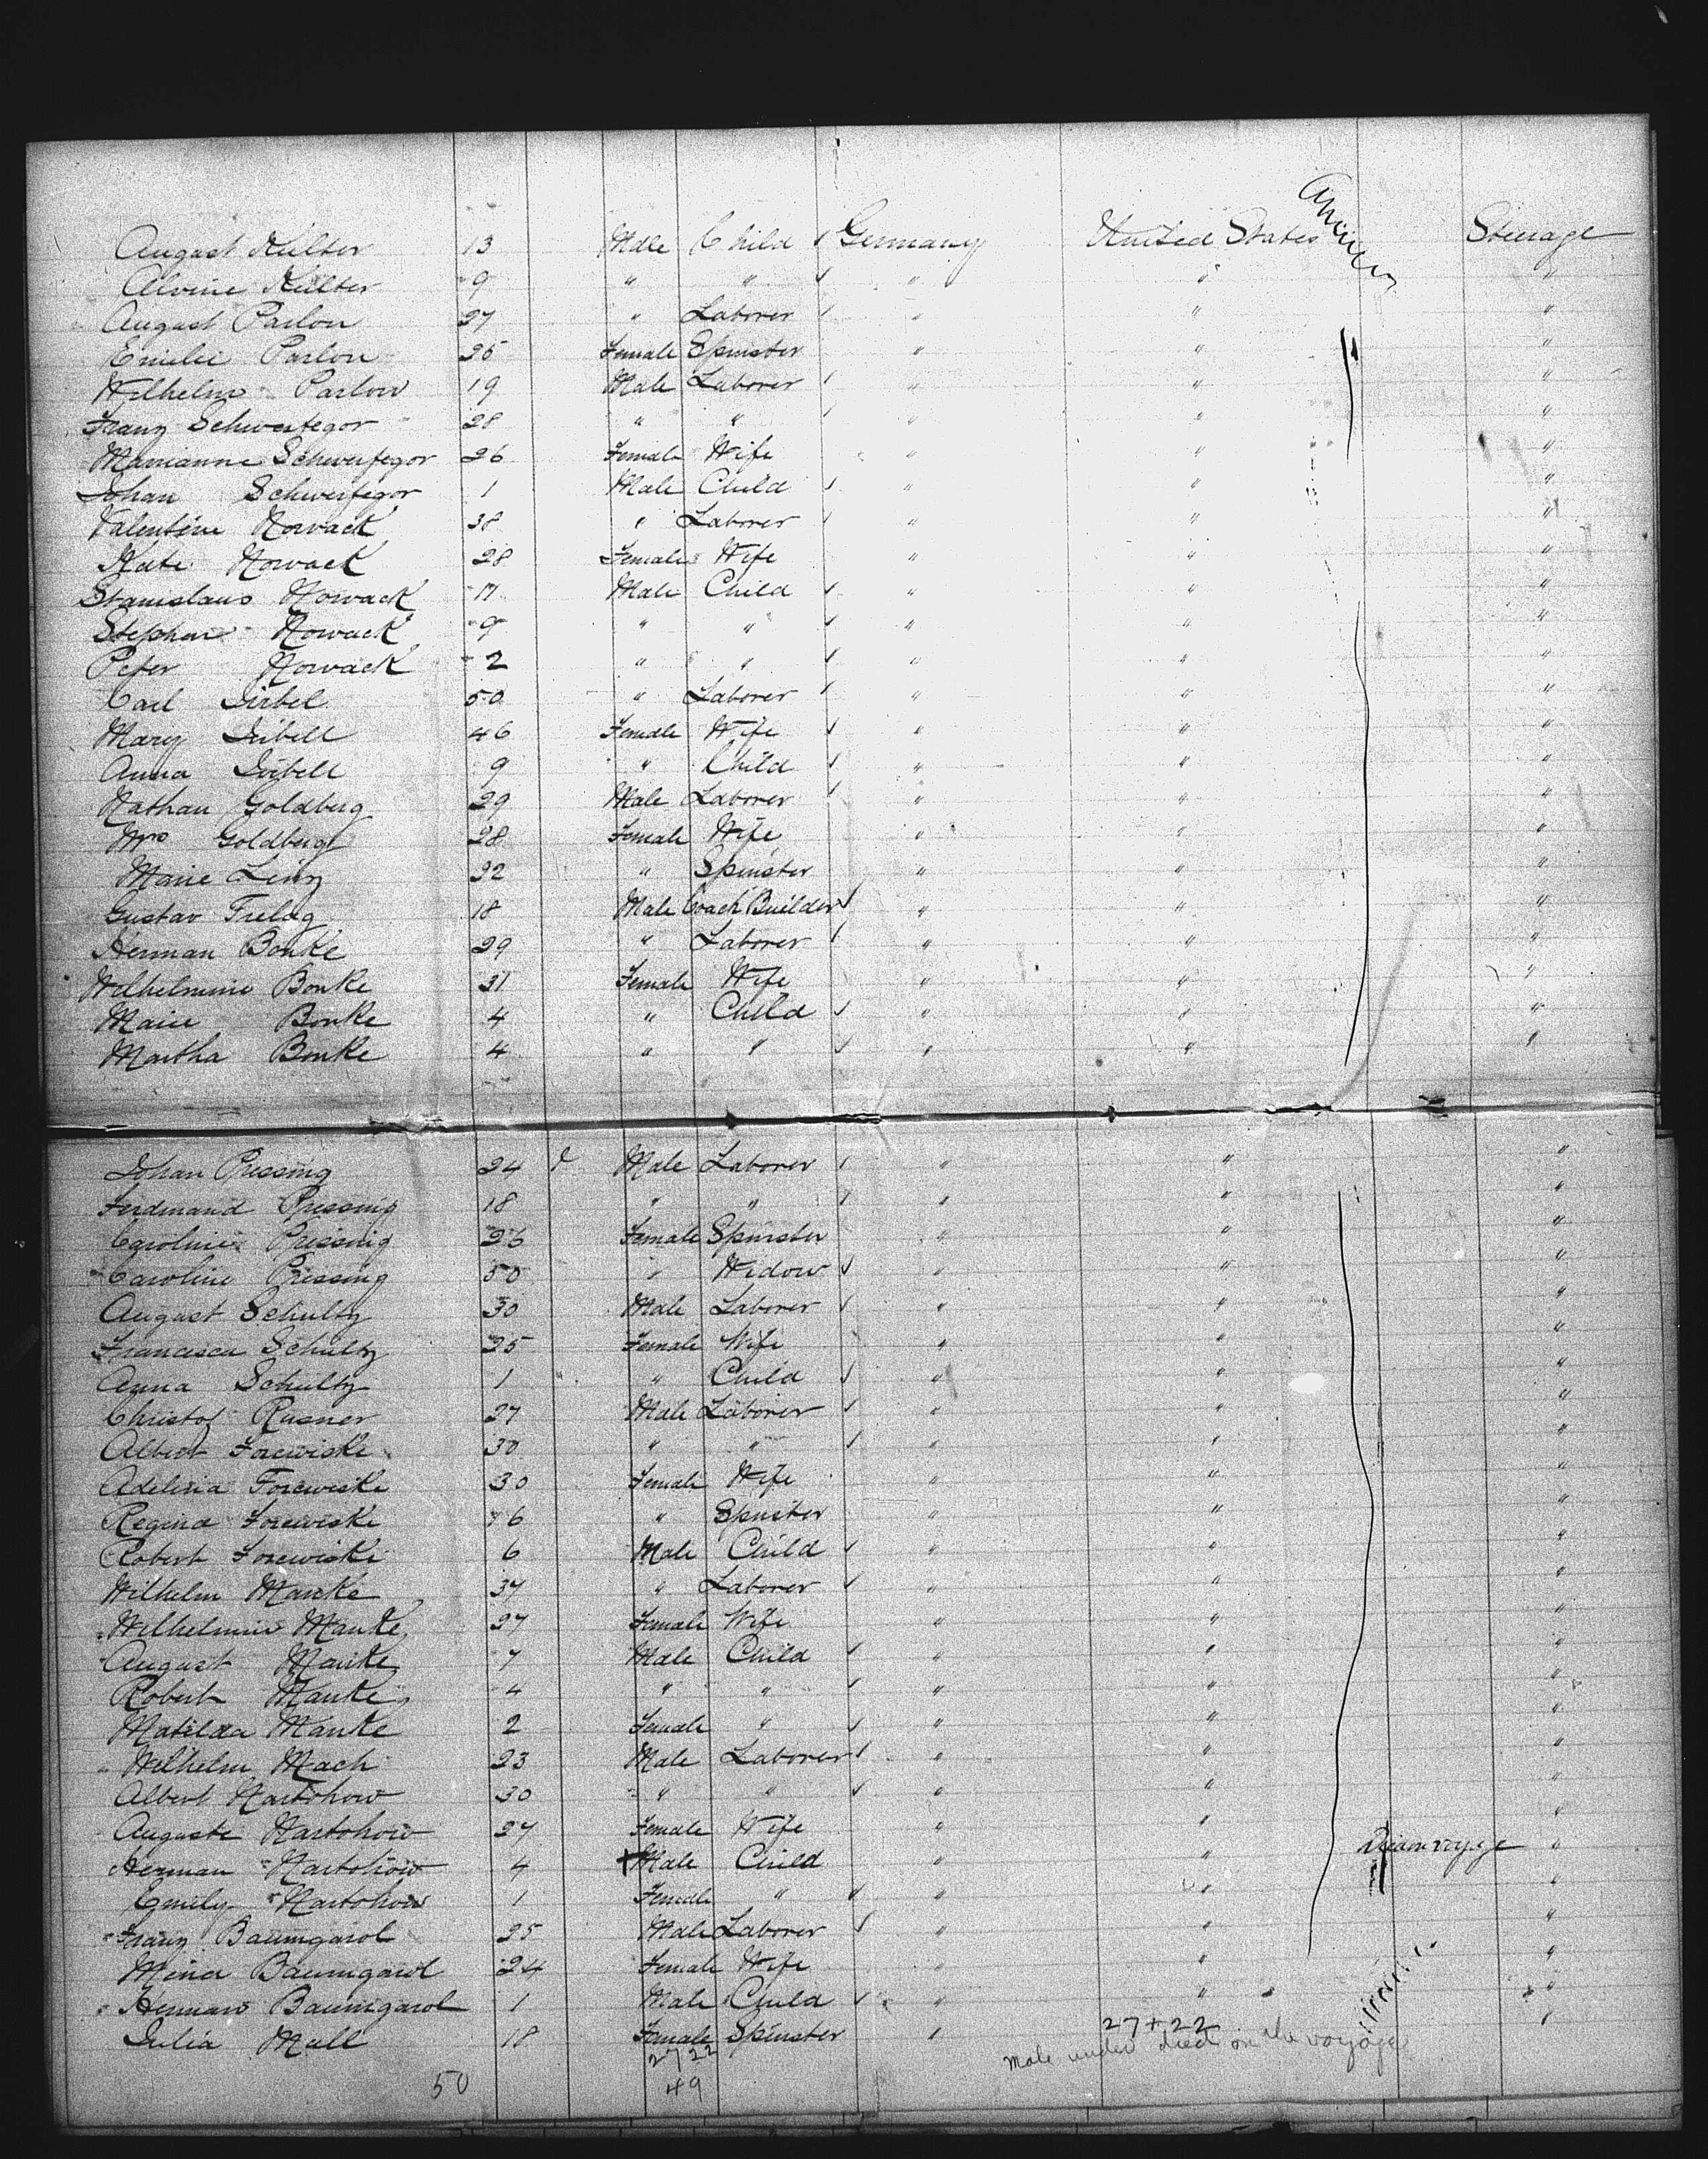 August Kulter 13 Male Child ✓ Germany United States Steerage
Alvine Kulter 9 " " ✓ " " "
August Parlow 27 " Laborer ✓ " " "
Emilie Parlow 25 Female Spinster " " "
Wilhelm Parlow 19 Male Laborer ✓ " " "
Franz Schwerfegor 28 " " ✓ " " "
Marianne Schwerfegor 26 Female Wife " " "
Johan Schwerfegor 1 Male Child ✓ " " "
Valentine Nowack 38 " Laborer ✓ " " "
Kate Nowack 28 Female Wife " " "
Stanislaus Nowack 11 Male Child ✓ " " "
Stephan Nowack 9 " " ✓ " " "
Peter Nowack 2 " " ✓ " " "
Carl 50 " Laborer ✓ " " "
Mary 46 Female Wife ✓ " " "
Anna 9 " Child ✓ " " "
Nathan Goldberg 29 Male Laborer ✓ " " "
Mrs Goldberg 28 Female Wife " " "
Marie Linz 22 " Spinster " " "
Gustav Frelag 18 Male Coach Builder ✓ " " "
Herman Bonke 29 " Laborer ✓ " " "
Wilhelmine Bonke 31 Female Wife " " "
Marie Bonke 4 " Child ✓ " " "
Martha Bonke 4 " " ✓ " " "
Johan Pressing 24 Male Laborer ✓ " " "
Ferdinand Pressing 18 " " ✓ " " "
Caroline Pressing 26 Female Spinster " " "
Caroline Pressing 50 " Widow ✓ " " "
August Schultz 30 Male Laborer ✓ " " "
Francisca Schultz 25 Female Wife " " "
Anna Schultz 1 " Child ✓ " " "
Christof Rusner 27 Male Laborer ✓ " " "
Albert Forewiske 30 " " ✓ " " "
Adelina Forewiske 30 Female Wife " " "
Regina Forewiske 76 " Spinster " " "
Robert Forewiske 6 Male Child ✓ " " "
Wilhelm Manke 34 " Laborer ✓ " " "
Wilhelmine Manke 27 Female Wife " " "
August Manke 7 Male Child ✓ " " "
Robert Manke 4 " " ✓ " " "
Matilda Manke 2 Female " ✓ " " "
Wilhelm Mach 23 Male Laborer ✓ " " "
Albert Nartohow 30 " " ✓ " " "
Auguste Nartohow 27 Female Wife " " "
Herman Nartohow 4 + Male Child " " Died on voyage "
Emily Nartohow 1 Female " ✓ " " "
Franz Baumgarol 25 Male Laborer ✓ " " "
Mina Baumgarol 24 Female Wife " " "
Herman Baumgarol 1 Male Child ✓ " " "
Julia Mall 18 Female Spinster " "
27 22 27+22
Male under died on the voyage
50 49